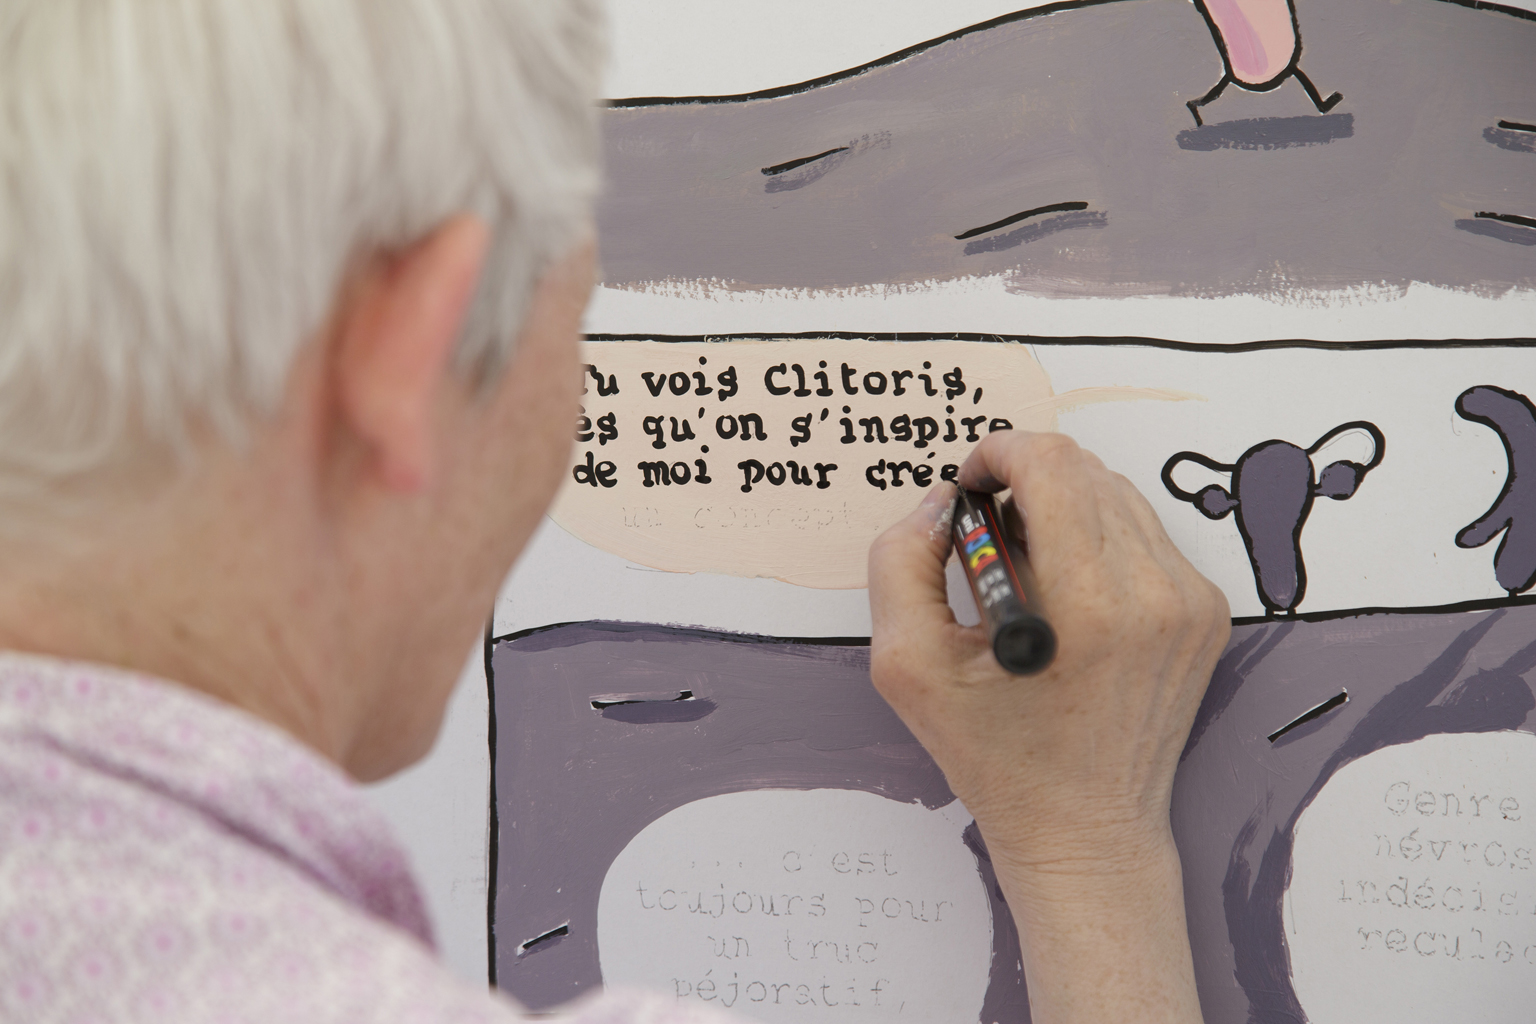 Tu vois Clitoris,
ès qu'on s'inspire
de moi pour crée
un concept,
... c'est
toujours pour
un truc
péjoratif,
Genre
névros
indécis
reculad